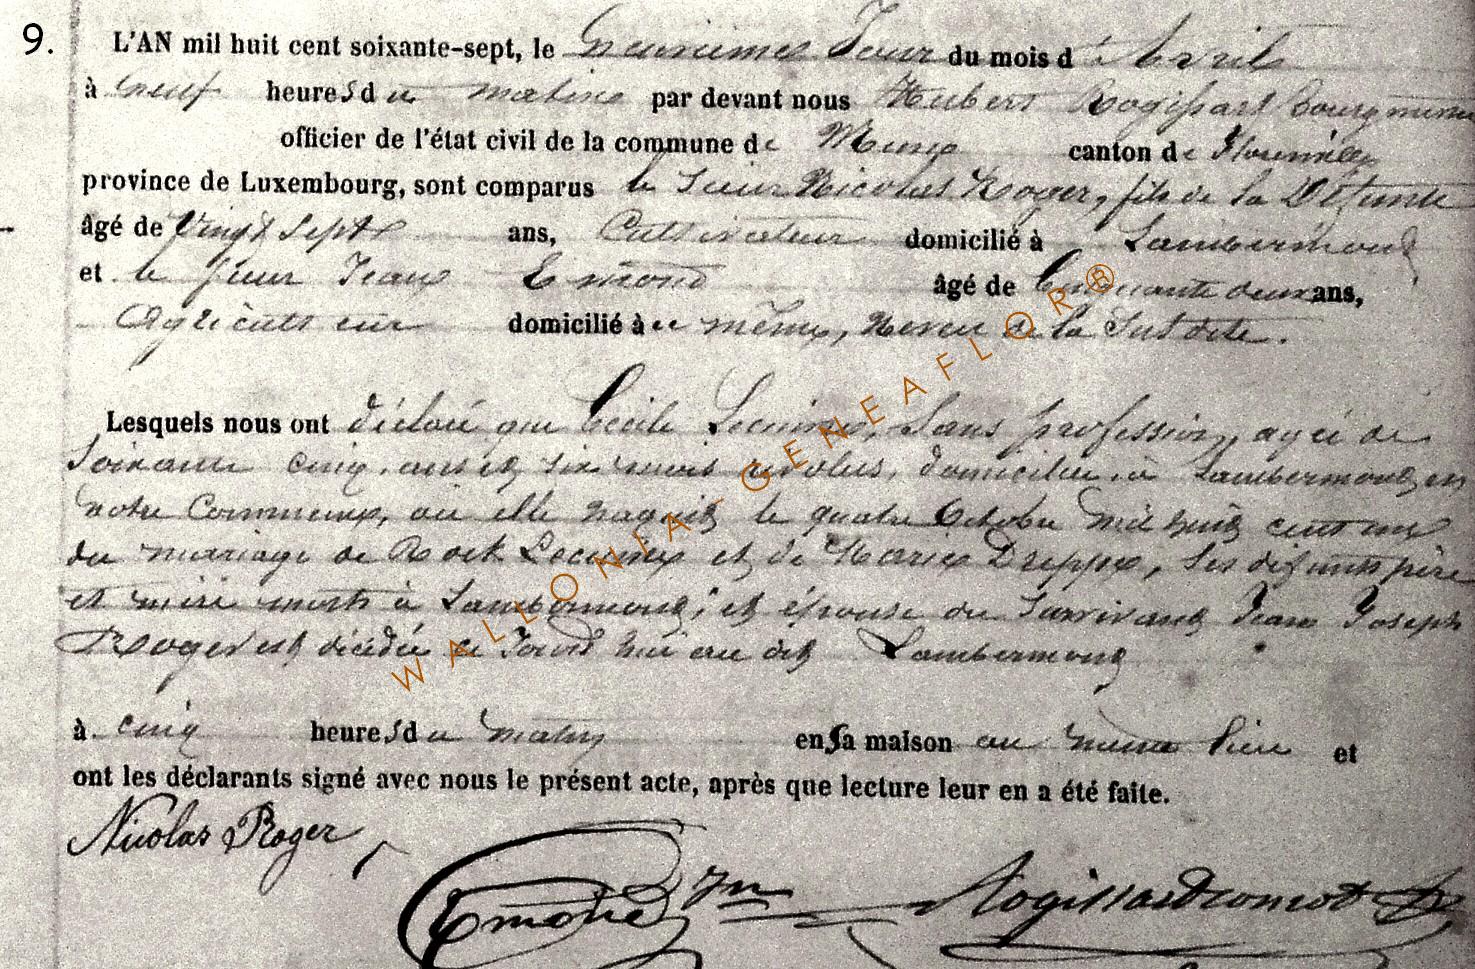 9.
L'AN mil huit cent soixante-sept, le Jour du mois d'Avril
à neuf heures du matin par devant nous Hubert Rogissart Bourgmestre
officier de l'état civil de la commune de Muno canton de Florenville
province de Luxembourg, sont comparus le Sieur Nicolas Roger, fils de la Défunte
âgé de Vingt Sept ans, Cultivateur domicilié à Lambermont
et le Sieur Jean Emond âgé de Cinquante deux ans,
Agriculteur domicilié à ce même, Neveu de la Susdite.
Lesquels nous ont déclaré que Cécile Sans profession, agée de
Soixante cinq ans et six mois révolus, domiciliée à Lambermont, en
notre Commune, où elle naquit le quatre Octobre mil huit cent un
du mariage de Rock et de Marie Dreppe, Ses défunts père
et mère morts à Lambermont; et épouse du Survivant Jean Joseph
Roger est décédée ce Jourd'hui au dit Lambermont
à cinq heures du matin en Sa maison au même lieu et
ont les déclarants signé avec nous le présent acte, après que lecture leur en a été faite.
Nicolas Roger
Emond Jn
WALLONIA-GENEAFLOR®